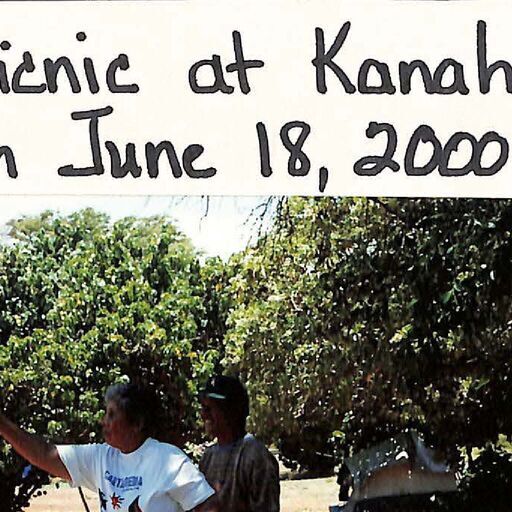 icnic at Kanah
n June 18, 2000
CARTAGENA